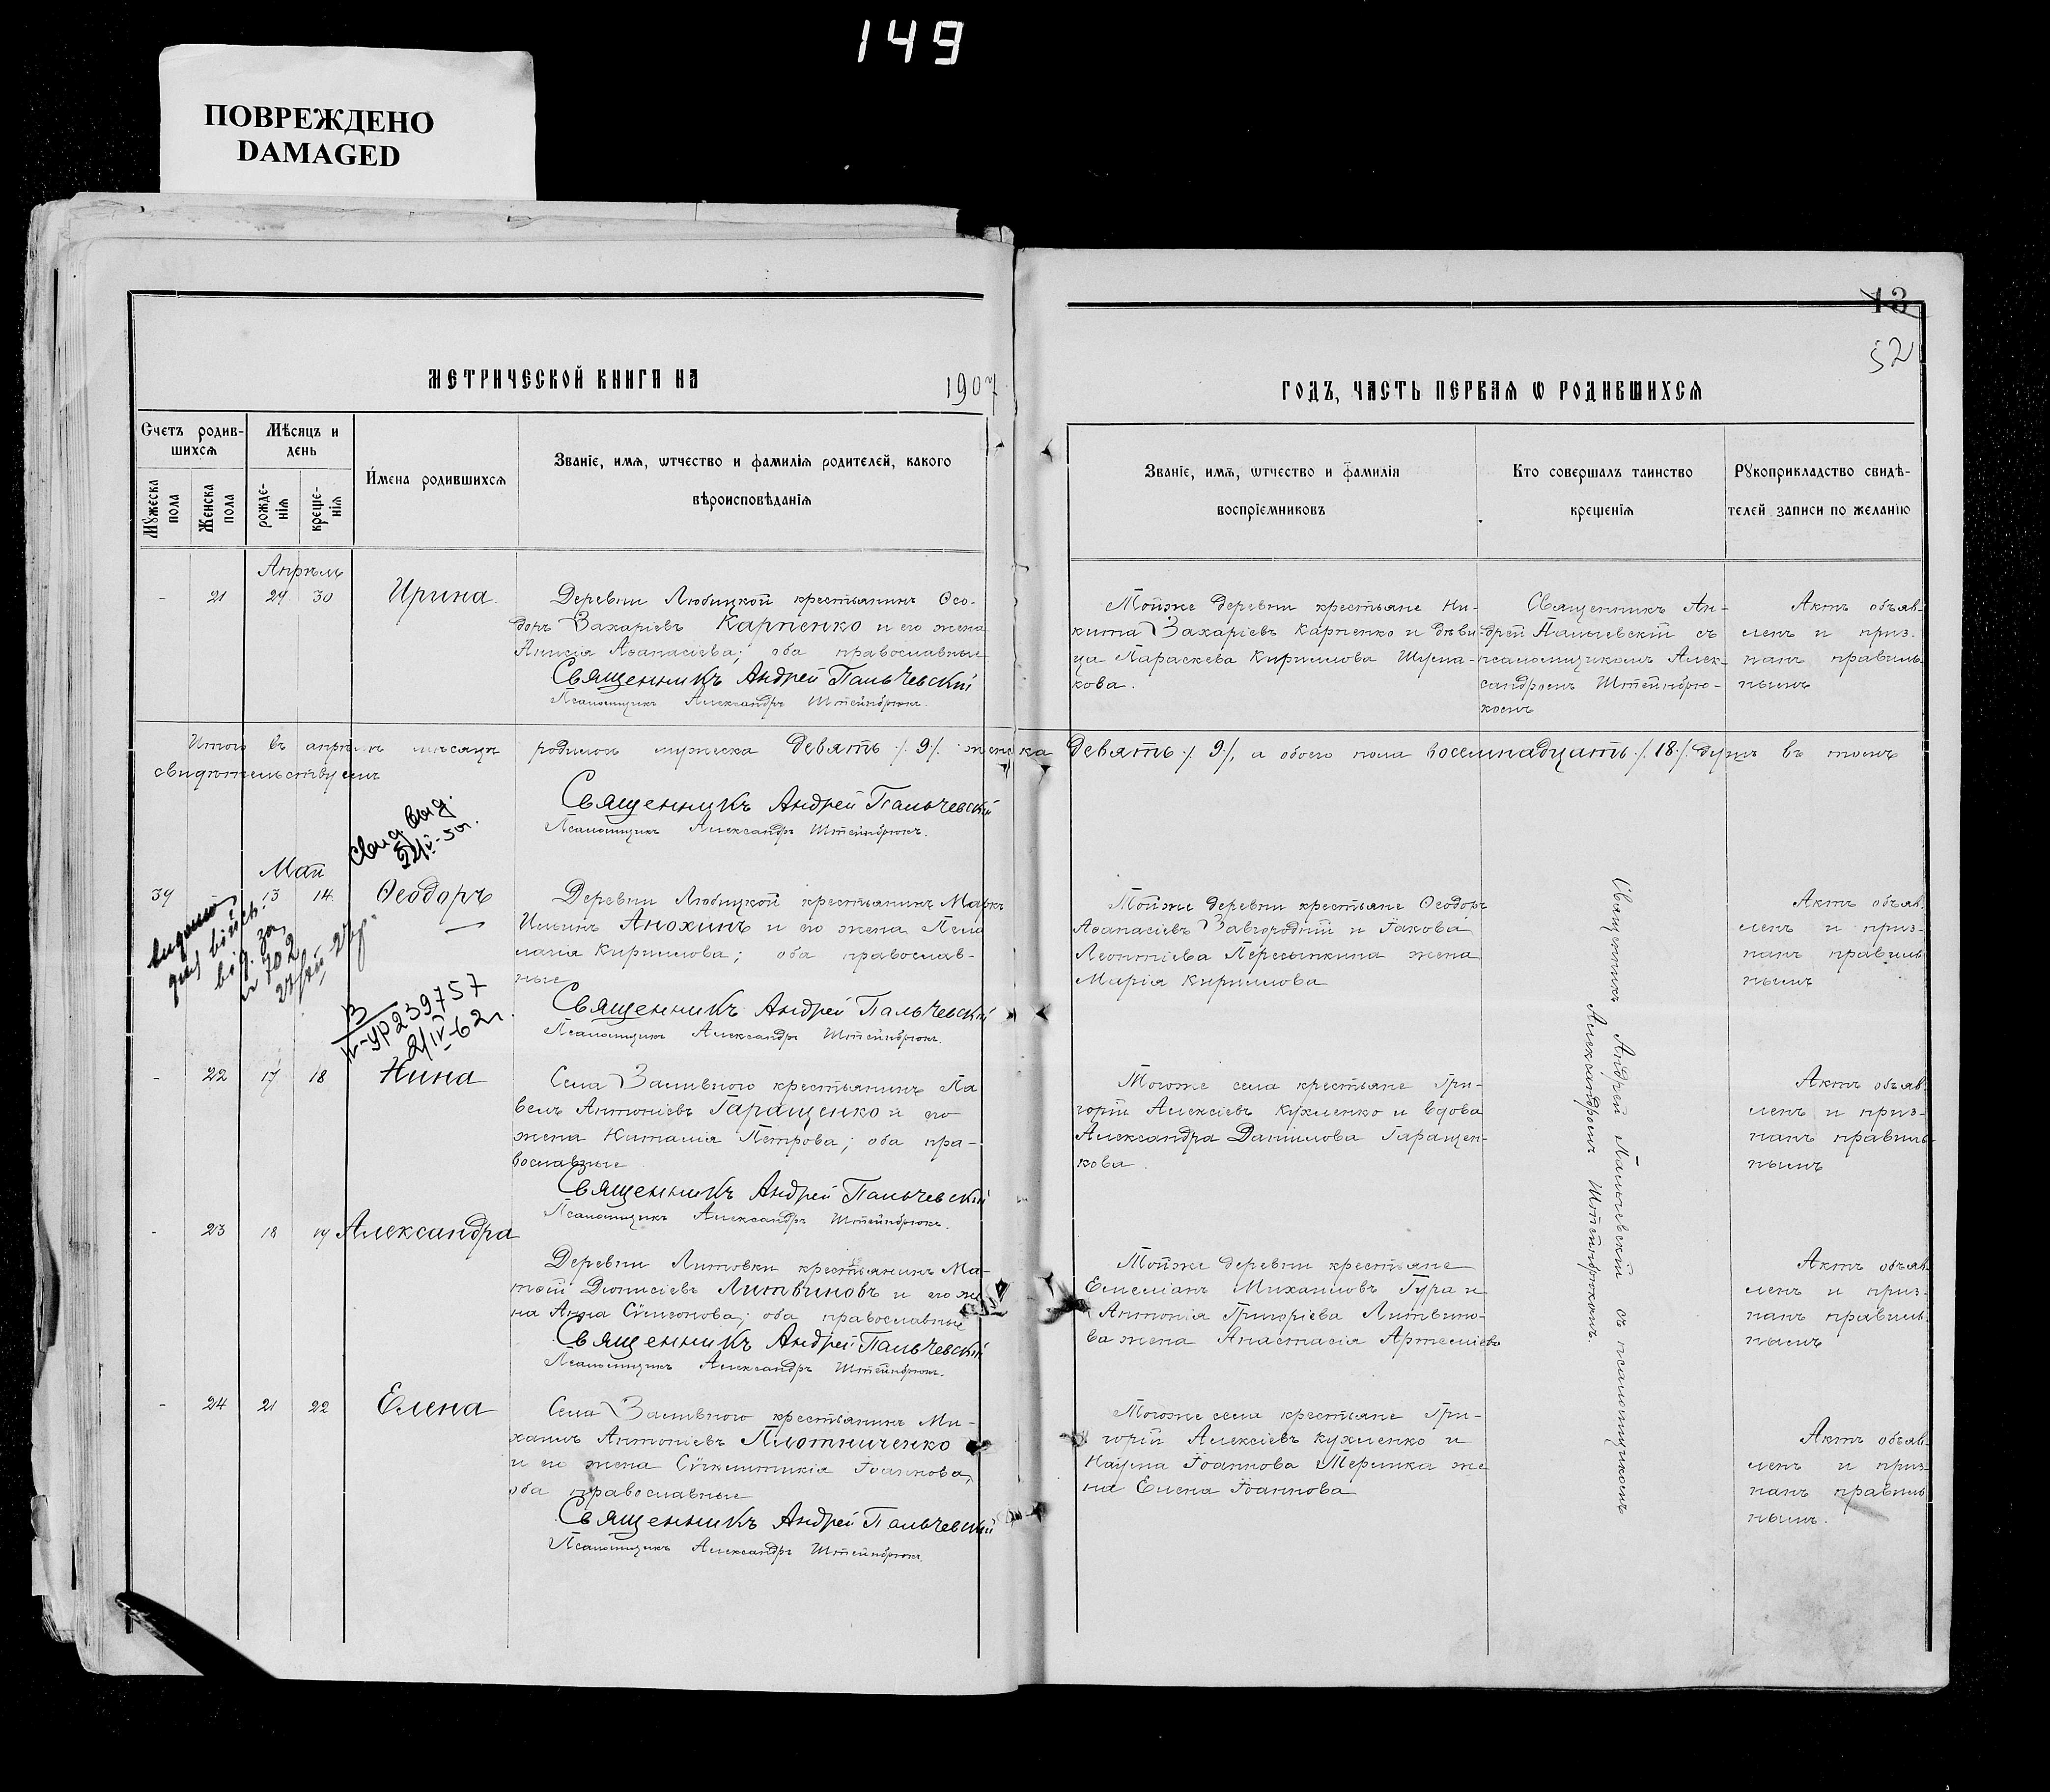 149
ПОВРЕЖДЕНО
DAMAGED
13
52
МЕТРИЧЕСКОЙ КНИГИ НА 1907
ГОДЪ, ЧАСТЬ ПЕРВАѦ Ѡ РОДИВШИХСѦ
Счетъ родив-
шихсѧ
Мѣсяцъ и
день
Мужеска
пола
Женска
пола
рожде-
нїѧ
креще-
нїѧ
Имена родившихсѧ
Званїе, имѧ, ѡтчество и фамилїѧ родителей, какого
вѣроисповѣданїѧ
Званїе, имѧ, ѡтчество и фамилїѧ
воспрїемниковъ
Кто совершалъ таинство
крещенїѧ
Рукоприкладство свидѣ-
телей записи по желанїю
Апрѣль
- 21 29 30 Ирина
Деревни Любицкой крестьянинъ Ѳео-
доръ Захаріевъ Карпенко и его жена
Анисія Аѳанасіева; оба православные
Священникъ Андрей Пальчевскій
Псаломщикъ Александръ Штейнбрюкъ.
Тойже деревни крестьяне Ни-
кита Захаріевъ Карпенко и дѣви-
ца Параскева Кириллова Шума-
кова.
Священникъ Ан-
дрей Пальчевскій съ
псаломщикомъ Алек-
сандромъ Штейнбрю-
комъ
Актъ объяв-
ленъ и приз-
нанъ правиль-
нымъ
Итого въ апрѣлѣ мѣсяцѣ родилось мужеска девять /9/. женска девять /9/, а обоего пола восемнадцать /18/ душъ въ томъ
свидѣтельствуемъ
Священникъ Андрей Пальчевскій
Псаломщикъ Александръ Штейнбрюкъ.
Май
39 13 14 Ѳеодоръ
Деревни Любицкой крестьянинъ Маркъ
Ильинъ Анохинъ и его жена Пела
гія Кириллова; оба православ-
ные
Священникъ Андрей Пальчевскій
Псаломщикъ Александръ Штейнбрюкъ.
Тойже деревни крестьяне Ѳеодоръ
Аѳанасіевъ Завгородній и Іакова
Леонтіева Пересыпкина жена
Марія Кириллова
Священникъ Андрей Пальчевскій съ псаломщикомъ
Александромъ Штейнбрюкомъ.
Актъ объяв-
ленъ и приз-
нанъ правиль
нымъ
239757
- 22 17 18 Нина
Села Заливного крестьянинъ Па
велъ Антоніевъ Гаращенко и его
жена Наталія Петрова; оба пра-
вославные
Священникъ Андрей Пальчевскій
Псаломщикъ Александръ Штейнбрюкъ.
Тогоже села крестьяне Гри-
горій Алексіевъ Кухленко и вдова
Александра Даніилова Гаращен-
кова.
Актъ объяв-
ленъ и приз-
нанъ правиль
нымъ
- 23 18 19 Александра
Деревни Литовки крестьянинъ Ма-
тѳей Діонисіевъ Литвиновъ и его же
на Анна Сѵмеонова; оба православные
Священникъ Андрей Пальчевскій
Псаломщикъ Александръ Штейнбрюкъ.
Тойже деревни крестьяне
Емеліанъ Михаиловъ Гура и
Антонія Григорьева Литвино-
ва жена Анастасія Артеміева
Актъ объяв
ленъ и приз-
нанъ правиль-
нымъ
- 24 21 22 Елена
Села Заливного крестьянинъ Ми-
хаилъ Антоніевъ Плотниченко
и его жена Сѵнклитикія Іоаннова,
оба православные
Священникъ Андрей Пальчевскій
Псаломщикъ Александръ Штейнбрюкъ.
Тогоже села крестьяне Гри-
горій Алексіевъ Кухленко и
Наума Іоаннова Тертка же
на Елена Іоаннова
Актъ объяв-
ленъ и приз-
нанъ правиль
нымъ.